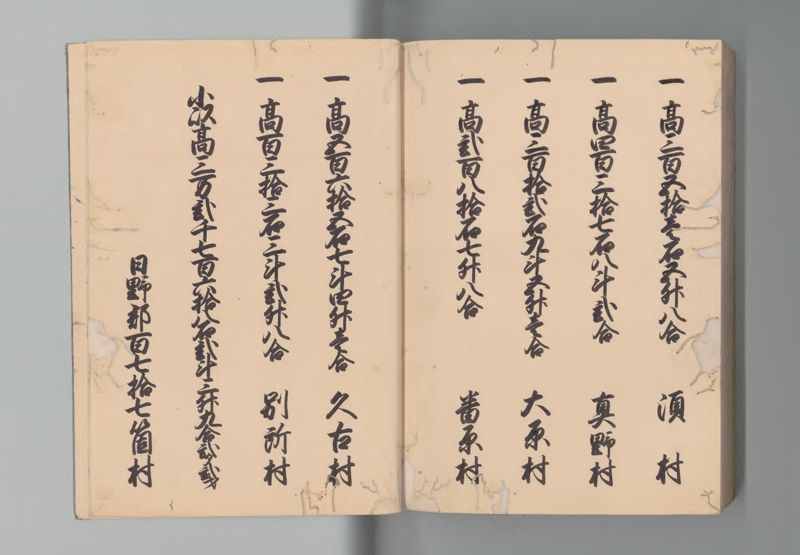 一高三百五拾壱石五升八合 須村
一高四百三拾七石八斗弐合 真野村
一高三百拾弐石九斗五升壱合 大原村
一高弐百八拾石七升八合 番原村
一高五百六拾五石七斗四升壱合 久古村
一高百三拾三石三斗弐升八合 別所村
小以高三万弐千七百六拾八石弐斗三升九合弐
日野郡百七拾七箇村